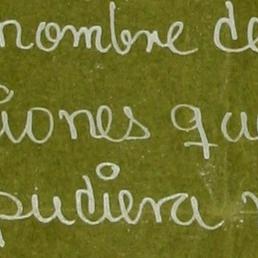 nombre de
iones que
pudiera